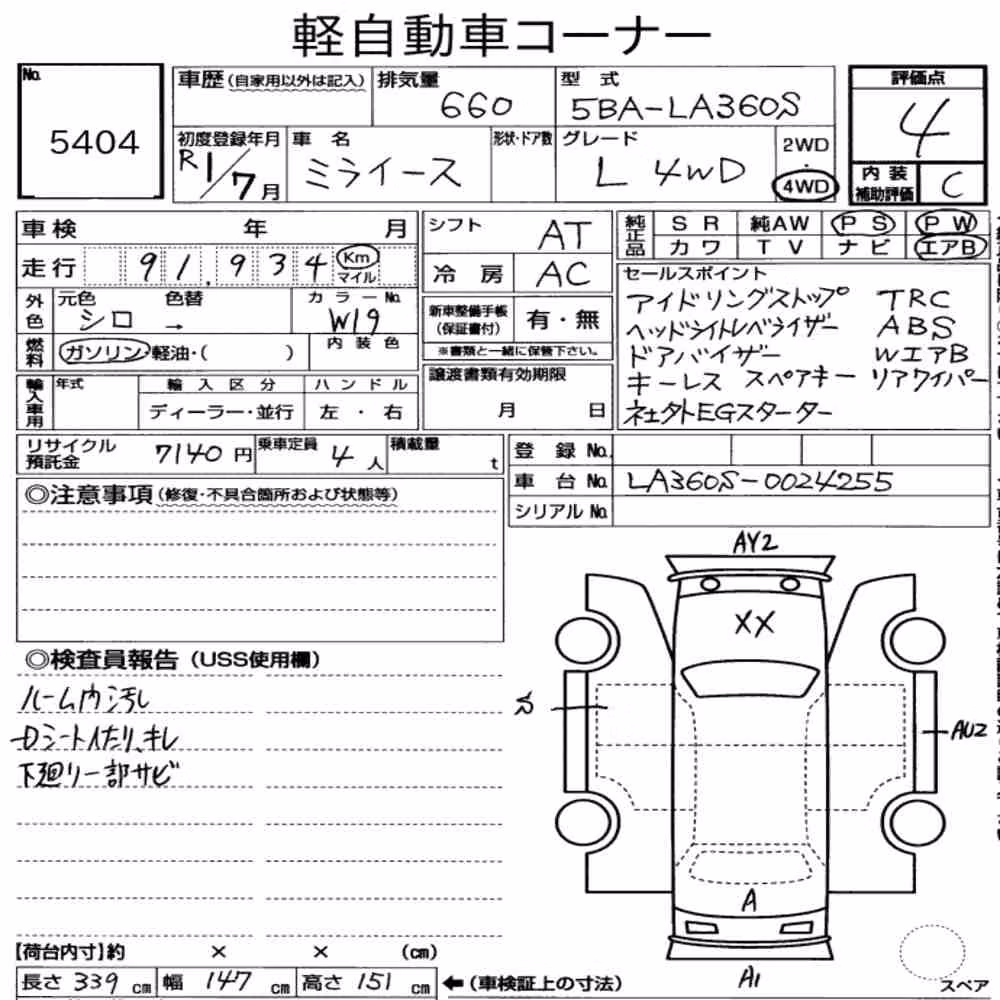 軽自動車コーナー
No. 5404
車歴(自家用以外は記入) 排気量 660 型式 5BA-LA360S 評価点 4
初度登録年月 R1/7月 車名 ミライース 形状・ドア数 グレード L 4WD 2WD・4WD 内装補助評価 C
車検 年 月 シフト AT 純正品 SR 純AW PS PW
走行 91,934 Km マイル 冷房 AC カワ TV ナビ エアB
外色 元色 シロ → 色替 カラーNo. W19 新車整備手帳(保証書付) 有・無
燃料 ガソリン・軽油・( ) 内装色 ※書類と一緒に保管下さい。
輸入車用 年式 輸入区分 ディーラー・並行 ハンドル 左・右 譲渡書類有効期限 月 日
セールスポイント
アイドリングストップ TRC
ヘッドライトレベライザー ABS
ドアバイザー WエアB
キーレス スペアキー リアワイパー
ネ土タトEGスターター
リサイクル預託金 7140円 乗車定員 4人 積載量 t
登録No.
車台No. LA360S-0024255
シリアルNo.
◎注意事項(修復・不具合箇所および状態等)
◎検査員報告(USS使用欄)
ルーム内汚れ
Dシートイたり、キレ
下廻り一部サビ
AY2
XX
S
AU2
A
A1
スペア
【荷台内寸】約 × × (cm)
長さ 339 cm 幅 147 cm 高さ 151 cm ←(車検証上の寸法)